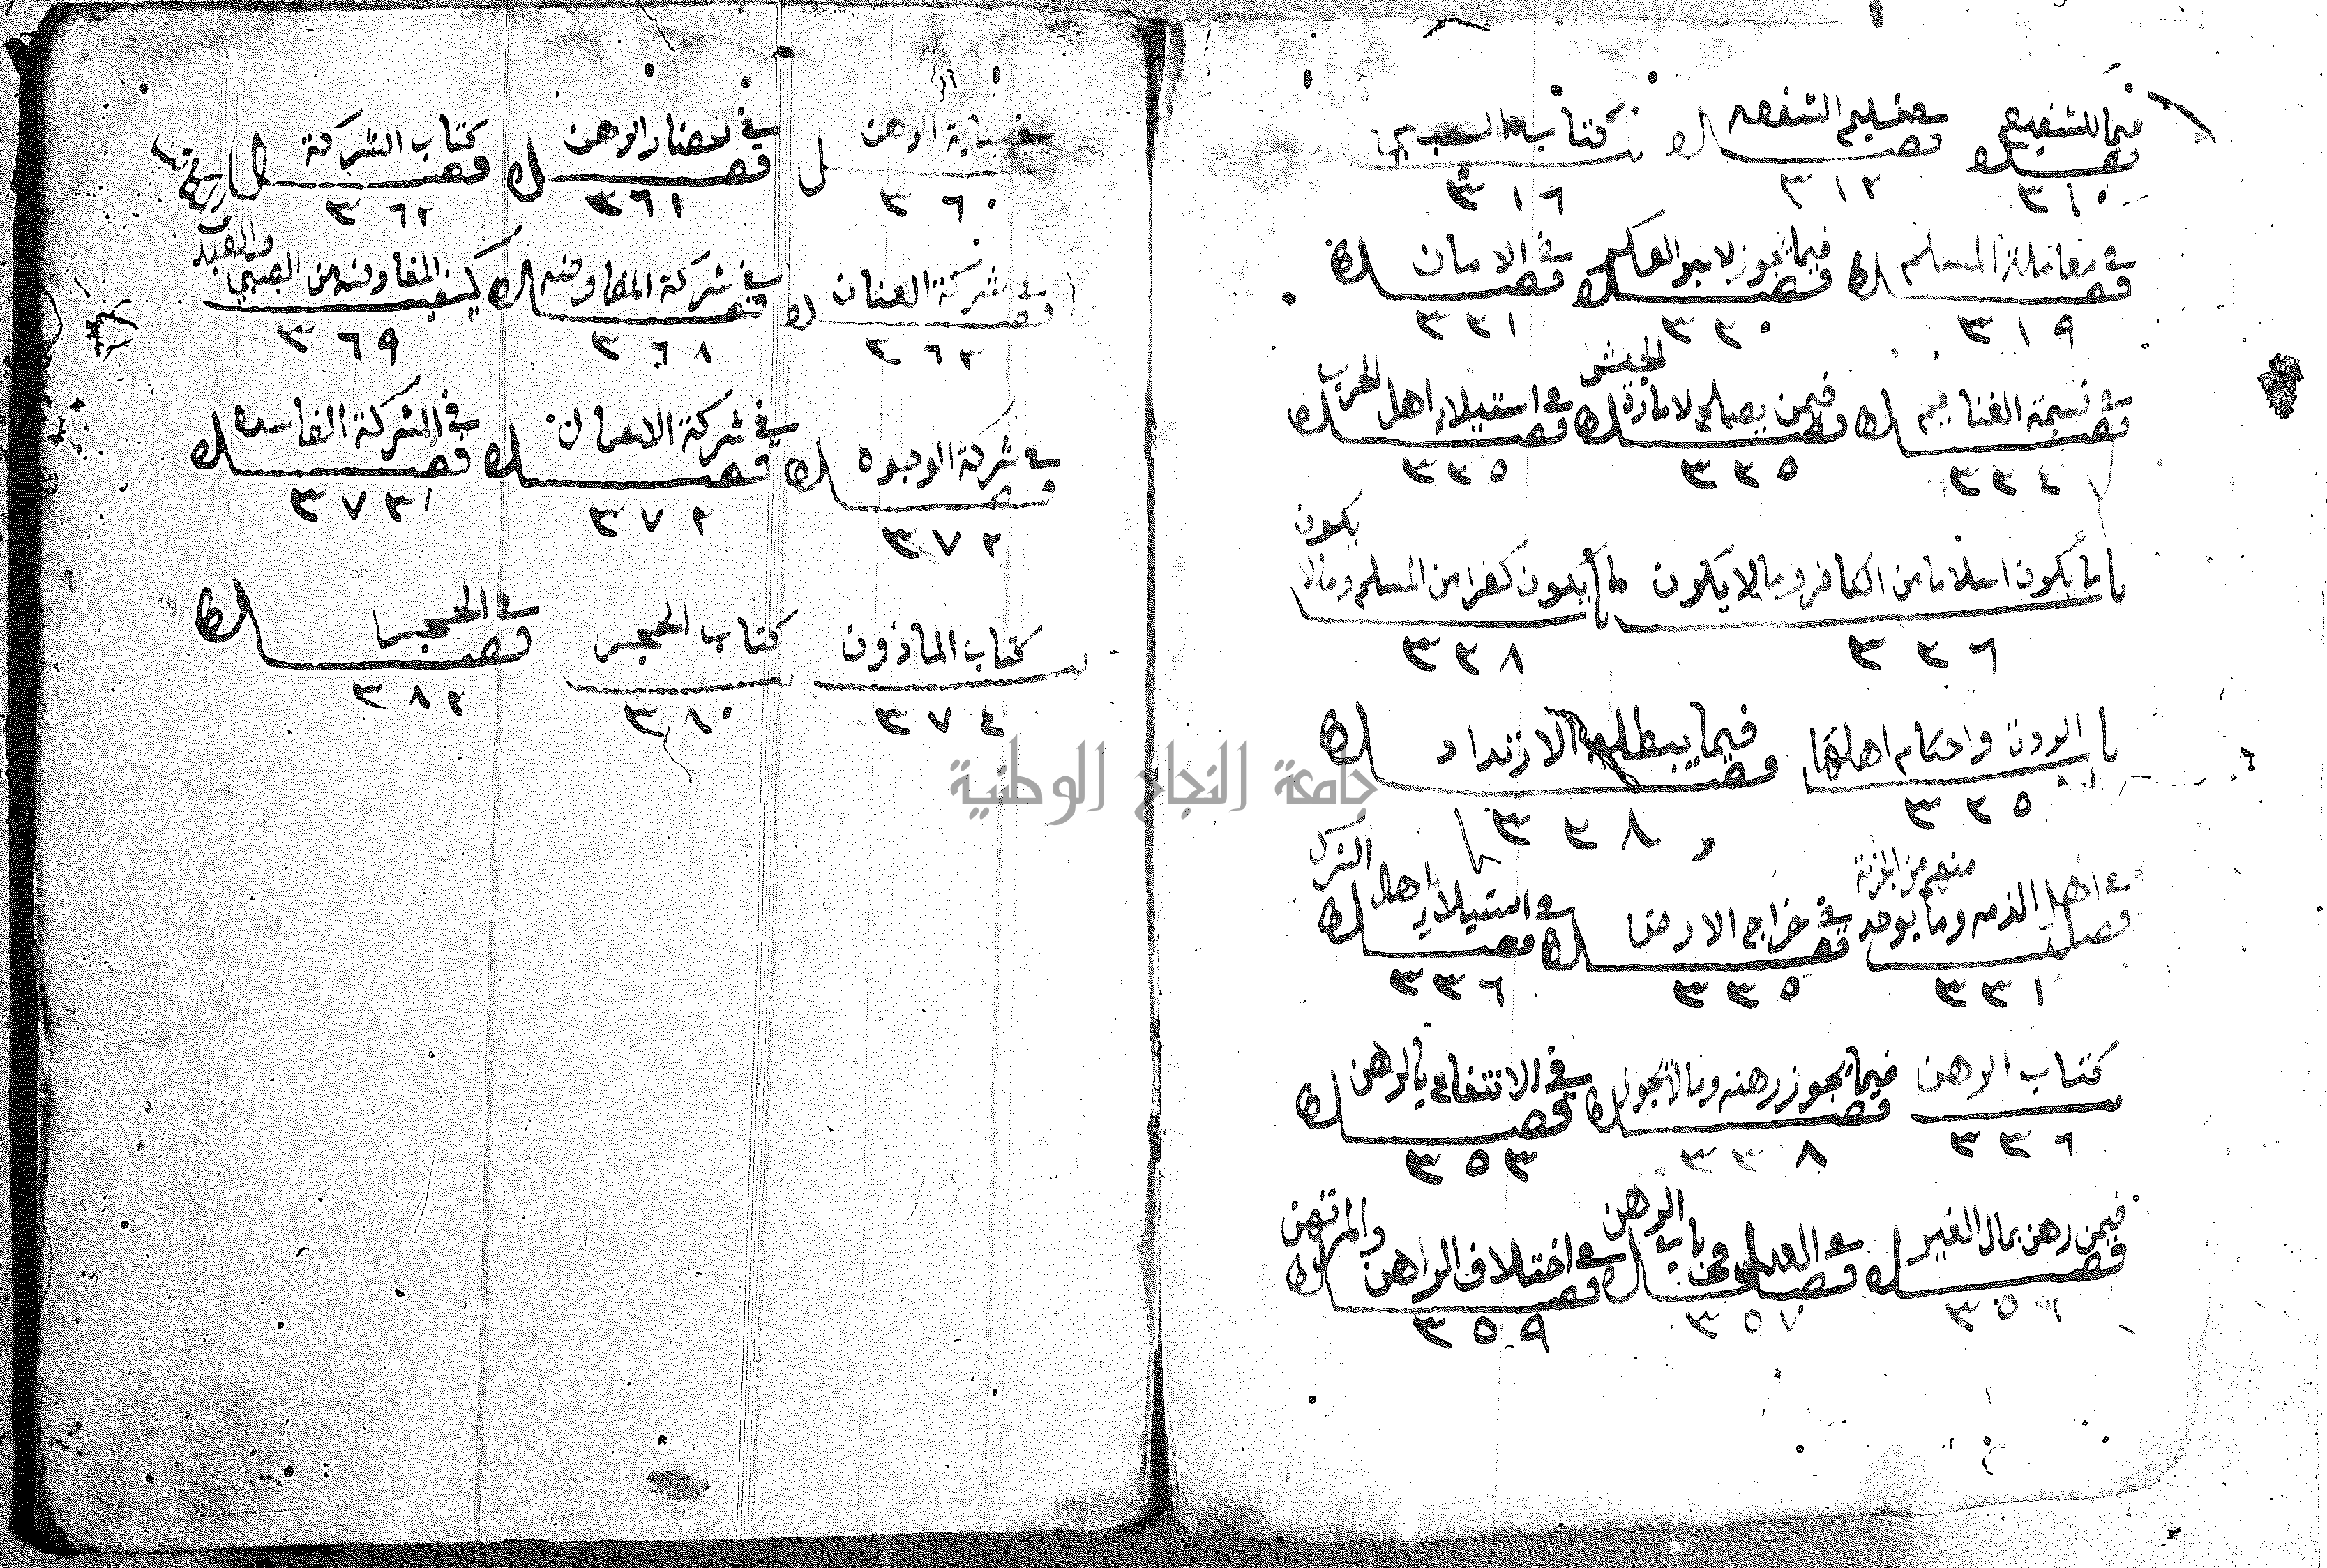 فصل فيما للشفيع فصل في تسليم الشفعه كتاب السير
٣١٠ ٣١٢ ٣١٦
فصل في معاملة المسلم فصل فيما يجوز لامير العسكر فصل في الامان
٣١٩ ٣٢٠ ٣٢١
فصل في قسمة الغنايم فصل فيمن يصلح لامارة الجيش فصل في استيلاء اهل الحرب
٣٢٤ ٣٢٥ ٣٢٥
باب ما يكون اسلاما من الكافر وما لا يكون باب ما يكون كفرا من المسلم وما لا يكون
٣٢٦ ٣٢٨
باب الردة واحكام اهلها فصل فيما يبطله الارتداد
٣٢٥ ٣٢٨
فصل في اهل الذمه وما يوخد منهم من الجزية فصل في خراج الارض فصل في استيلاء اهل الشرك
٣٣١ ٣٣٥ ٣٣٦
كتاب الرهن فصل فيما يجوز رهنه وما لا يجوز فصل في الانتفاع بالرهن
٣٣٦ ٣٣٨ ٣٥٣
فصل فيمن رهن بمال الغير فصل في العدل في باب الرهن فصل في اختلاف الراهن والمرتهن
٣٥٦ ٣٥٧ ٣٥٩
في جناية الرهن فصل في احضار الرهن فصل كتاب الشركة
٣٦٠ ٣٦١ ٣٦٢
فصل في شركة العنان فصل في شركة المفاوضه المفاوضه من الصبي والعبد
٣٦٣ ٣٦٨ ٣٦٩
فصل في شركة الوجوه فصل في شركة الاعمال فصل في الشركة الفاسده
٣٧٢ ٣٧٢ ٣٧٣
كتاب الماذون كتاب الحجر فصل في الحجر
٣٧٤ ٣٨٠ ٣٨٢
جامعة النجاح الوطنية